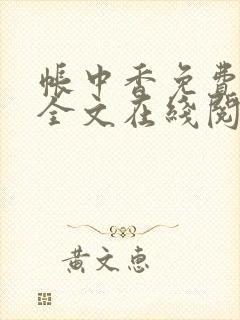 帐中香免费
全文在线阅
黄文惠